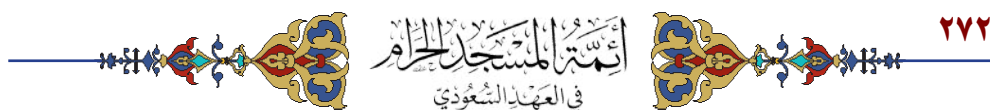 ٢٧٢
أئمة المسجد الحرام
في العهد السعودي